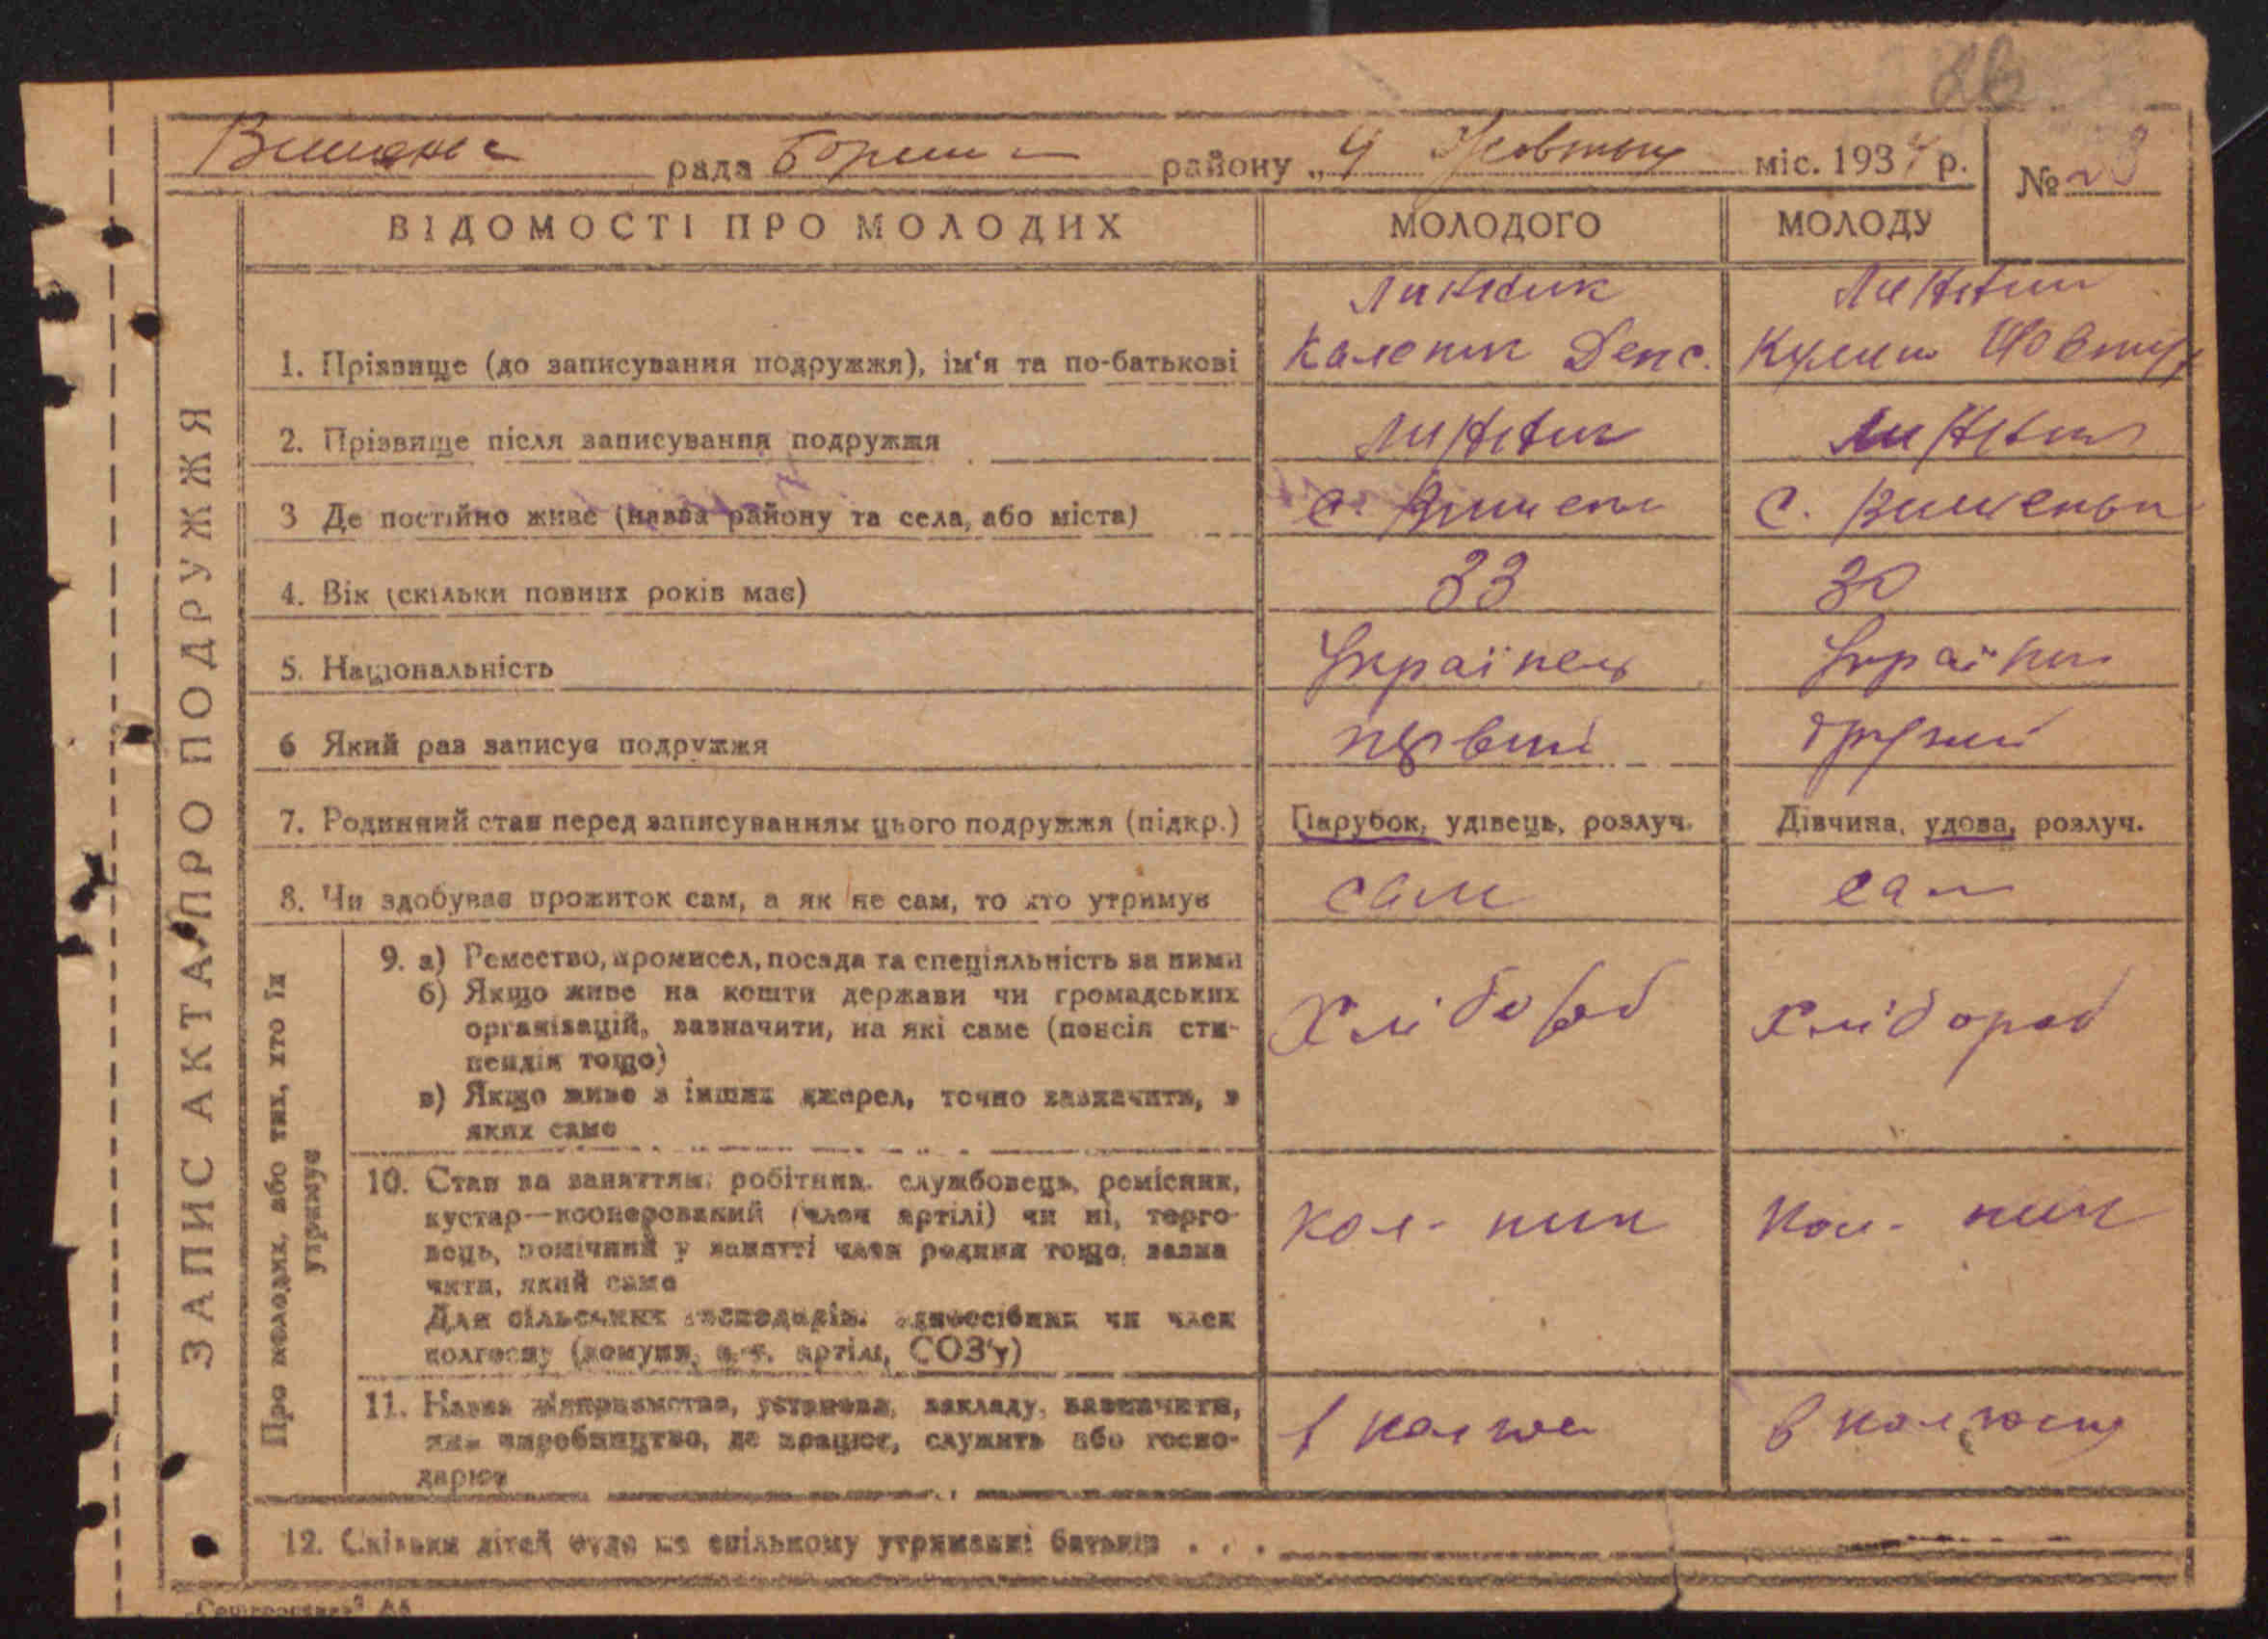 рада Бориш району „4 Жовтня міс. 1934 р.
№ 23
ВІДОМОСТІ ПРО МОЛОДИХ
МОЛОДОГО
МОЛОДУ
ЗАПИС АКТА ПРО ПОДРУЖЖЯ
1. Прізвище (до записування подружжя), ім'я та по-батькові
Каленик
2. Прізвище після записування подружжя
3 Де постійно живе (назва району та села, або міста)
с.
С. Вишеньки
4. Вік (скільки повних років має)
33
30
5. Національність
Українець
Україн
6 Який раз записує подружжя
первий
другий
7. Родинний стан перед записуванням цього подружжя (підкр.)
Парубок, удівець, розлуч.
Дівчина, удова, розлуч.
8. Чи здобуває прожиток сам, а як не сам, то хто утримує
сам
сам
Про молодих, або тих, хто їх
утримує
9. а) Ремество, промисел, посада та спеціяльність за ними
б) Якщо живе на кошти держави чи громадських
організацій, зазначити, на які саме (пенсія сти-
пендія тощо)
в) Якщо живе з інших джерел, точно зазначити, з
яких саме
Хлібороб
Хлібороб
10. Стан за заняттям: робітник, службовець, ремісник,
кустар—кооперований (член артілі) чи ні, торго-
вець, помічний у занятті член родини тощо, зазна
чити, який саме
Для сільських господарів: одноосібник чи член
колгоспу (комуни, с.-г. артілі, СОЗ'у)
кол- ник
кол- ник
11. Назва підприємства, установи, закладу, зазначити,
яке виробництво, де працює, служить або госпо-
дарює
в колгос
в колгоспу
12. Скільки дітей буде на спільному утриманні батьків . . .